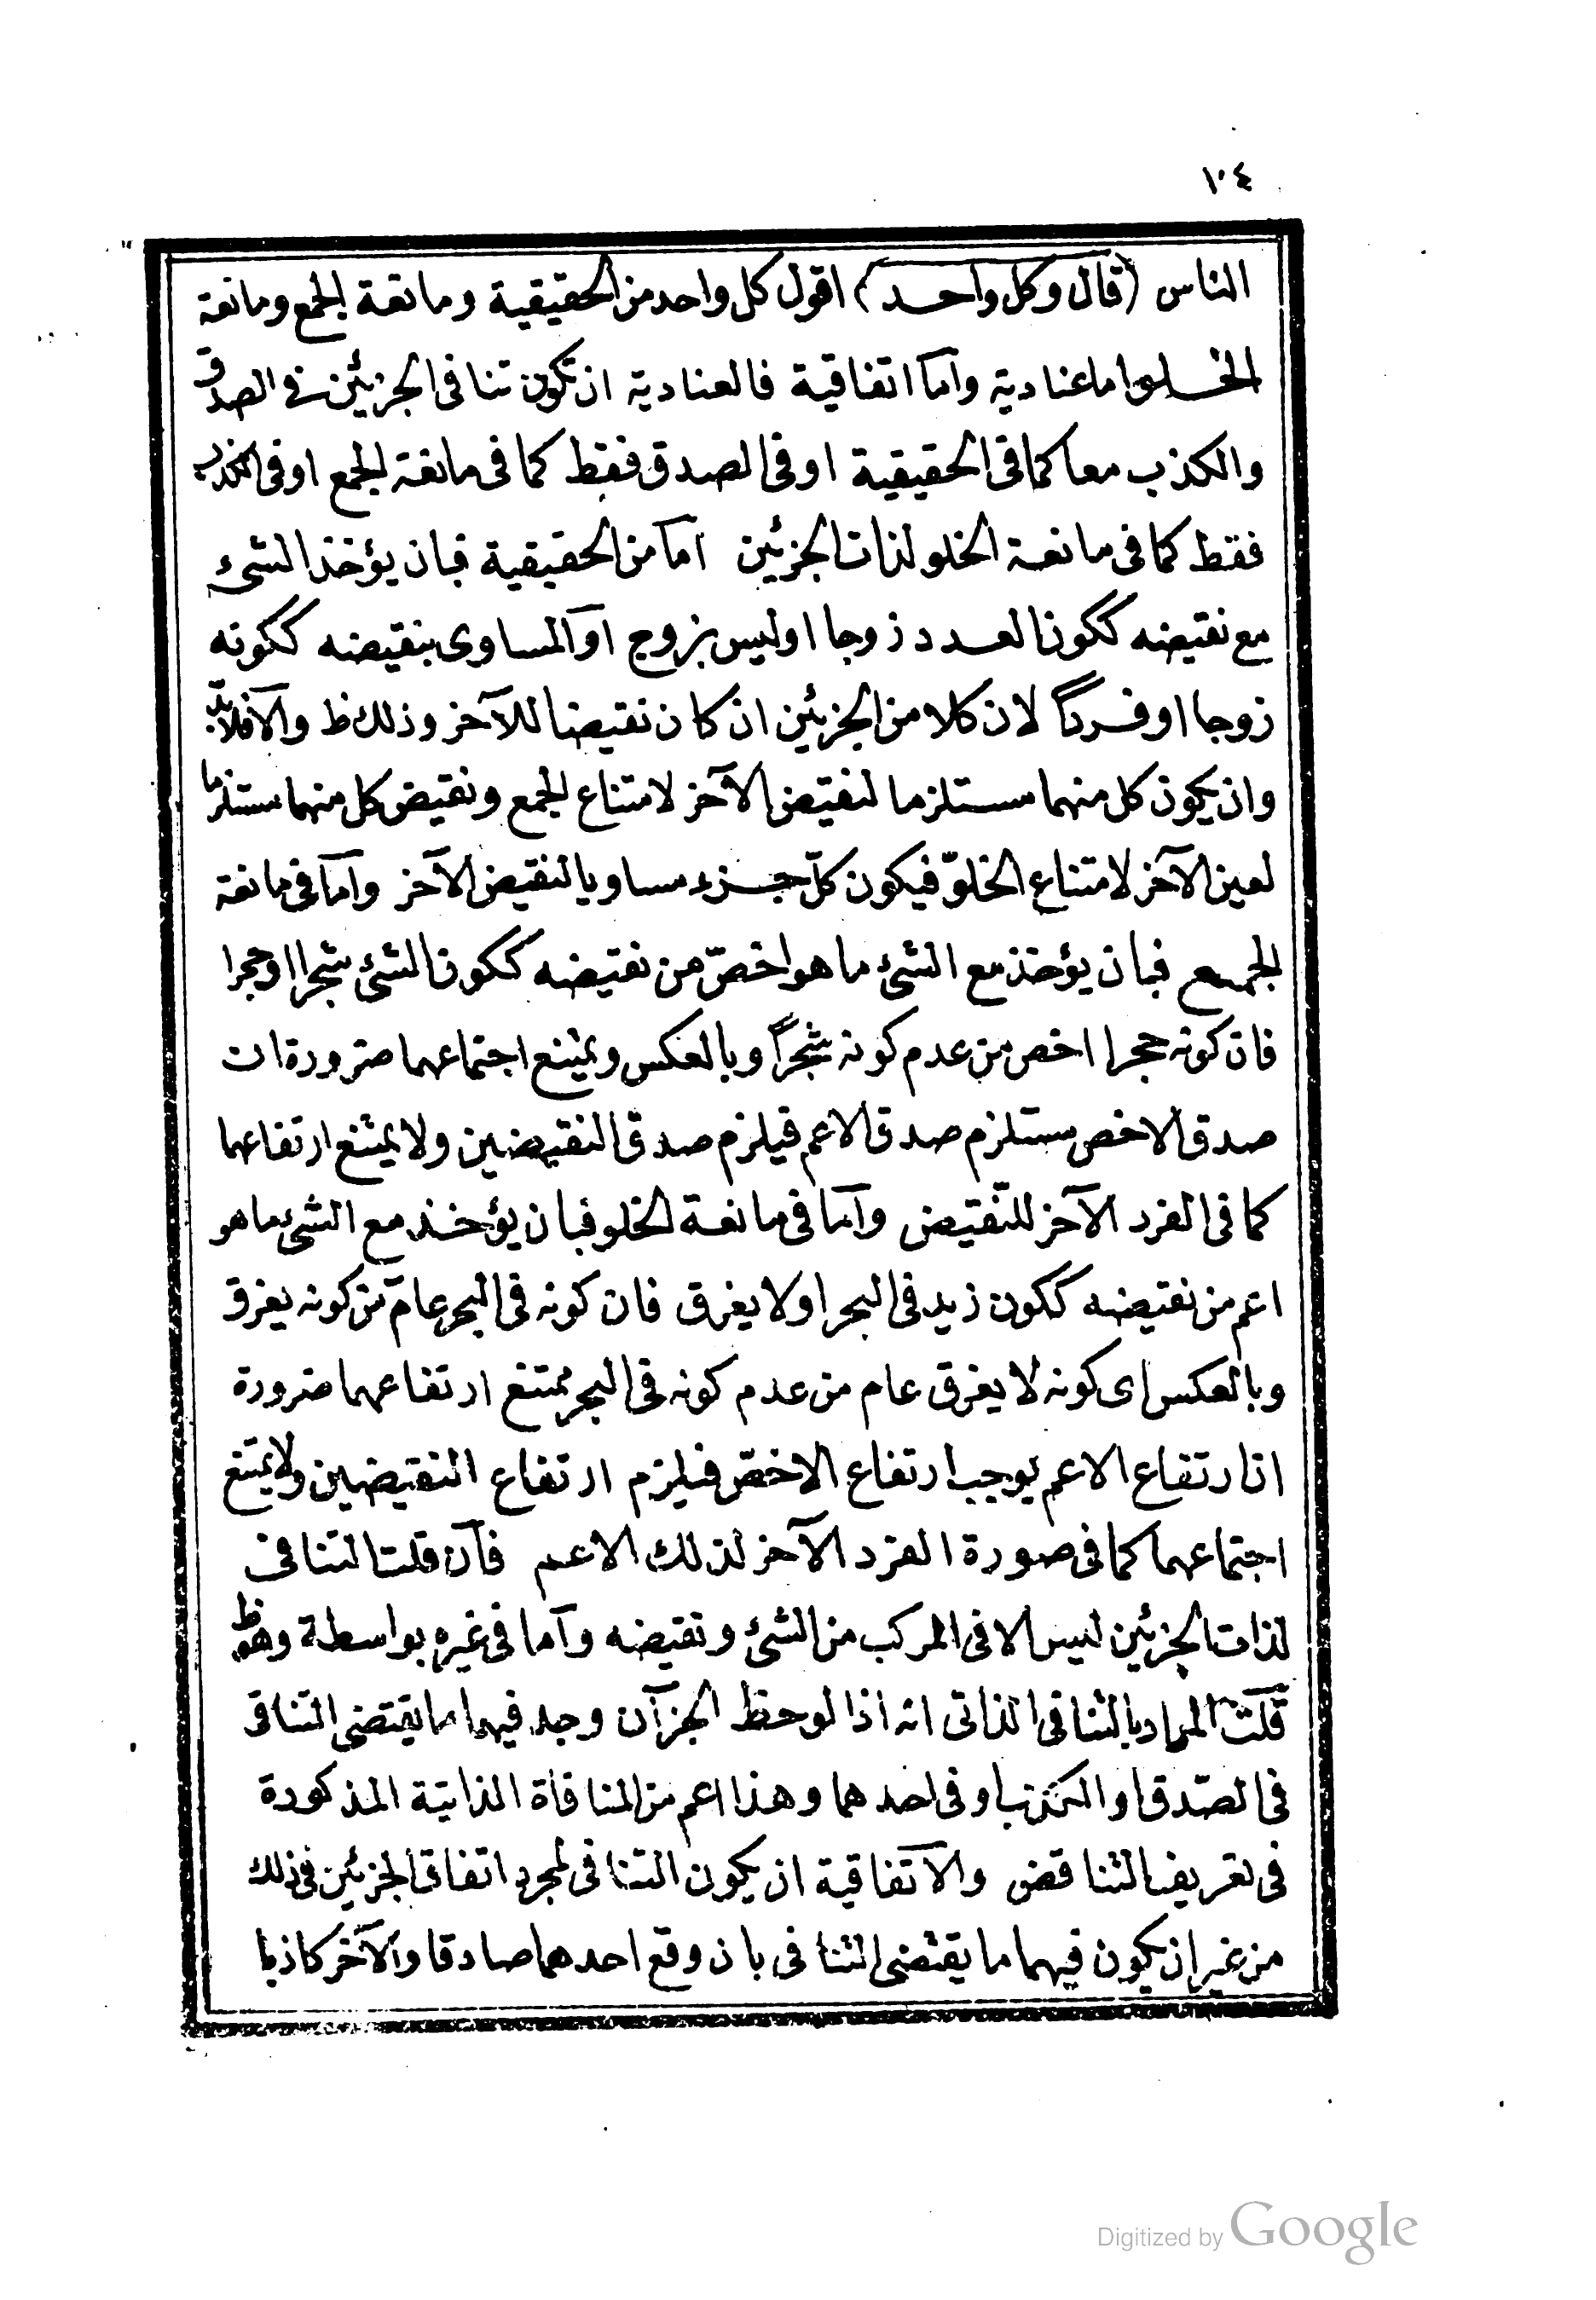 ١٠٤
الناس (قال وكل واحد) اقول كل واحد من الحقيقية ومانعة الجمع ومانعة
الخلو اما عنادية واما اتفاقية فالعنادية ان تكون تنافى الجزئين فى الصدق
والكذب معا كما فى الحقيقية او فى الصدق فقط كما فى مانعة الجمع او فى الكذب
فقط كما فى مانعة الخلو لذات الجزئين اما من الحقيقية فبان يؤخذ الشئ
مع نقيضه ككون العدد زوجا او ليس بزوج او المساوى بنقيضه ككونه
زوجا او فردًا لان كلا من الجزئين ان كان نقيضا للآخر وذلك ظ والا فلا بدّ
وان يكون كل منهما مستلزما لنقيض الآخر لامتناع الجمع ونقيض كل منهما مستلزما
لعين الآخر لامتناع الخلوّ فيكون كلّ جزء مساويا لنقيض الآخر واما فى مانعة
الجمع فبان يؤخذ مع الشئ ما هو اخصّ من نقيضه ككون الشئ شجرا او حجرا
فان كونه حجرا اخص من عدم كونه شجرًا وبالعكس ويمتنع اجتماعهما ضرورة ان
صدق الاخص مستلزم صدق الاعم فيلزم صدق النقيضين ولا يمتنع ارتفاعهما
كما فى الفرد الآخر للنّقيض واما فى مانعة الخلو فبان يؤخذ مع الشئ ما هو
اعم من نقيضه ككون زيد فى البحر او لا يغرق فان كونه فى البحر عامّ من كونه يغرق
وبالعكس اى كونه لا يغرق عام من عدم كونه فى البحر ممتنع ارتفاعهما ضرورة
ان ارتفاع الاعم يوجب ارتفاع الاخصّ فيلزم ارتفاع النقيضين ولا يمتنع
اجتماعهما كما فى صورة الفرد الآخر لذلك الاعم فان قلت التنافى
لذات الجزئين ليس الا فى المركب من الشئ ونقيضه واما فى غيره بواسطة وهو ظ
قلت المراد بالتنافى الذاتى انه اذا لوحظ الجزآن وجد فيهما ما يقتضى التنافى
فى الصّدق او الكذب او فى احدهما وهذا اعم من المنافاة الذاتية المذكورة
فى تعريف التناقض والاتفاقية ان يكون التنافى لمجرد اتفاق الجزئين فى ذلك
من غير ان يكون فيهما ما يقتضى التنافى بان وقع احدهما صادقا والآخر كاذبا
Digitized by Google